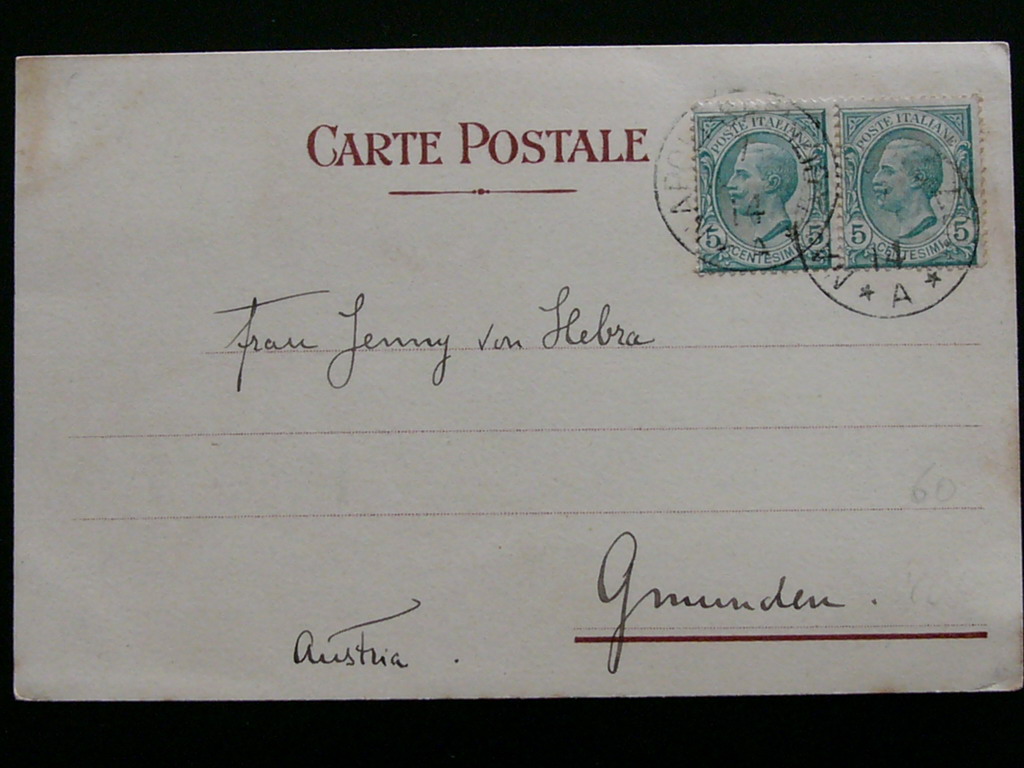 CARTE POSTALE
POSTE ITALIANE
5 CENTESIMI 5
POSTE ITALIANE
5 CENTESIMI 5
14
A
14
* A *
Frau Jenny von Hebra
60
Gmunden.
Austria.